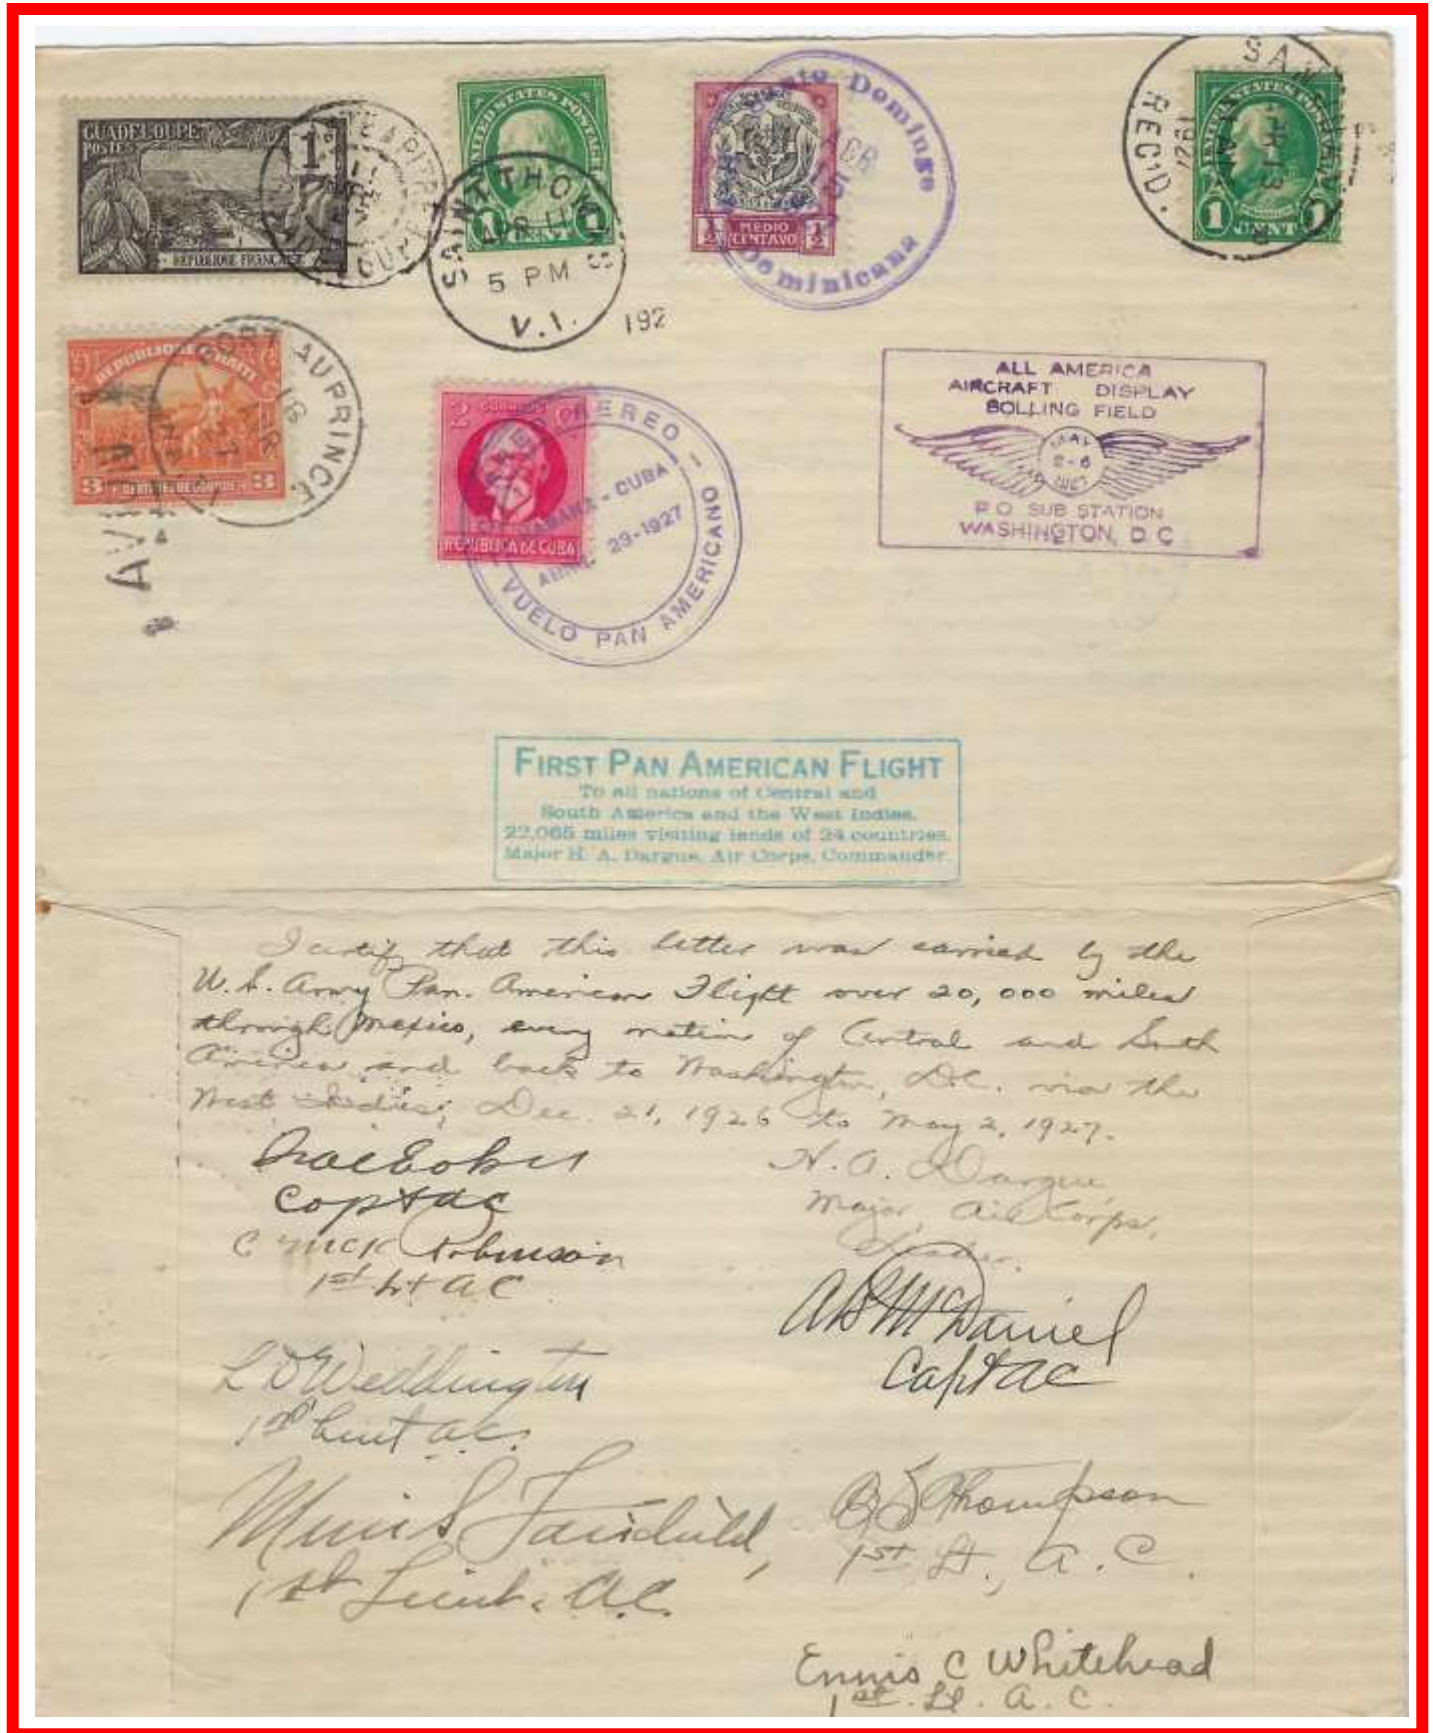 GUADELOUPE
POSTES
1
REPUBLIQUE FRANCAISE
UNITED STATES POSTAGE
1 CENT 1
SAINT THOM S
APR 11
5 PM
V.I.
192
Santo Domingo
Dominicana
1/2 MEDIO CENTAVO 1/2
SAN
REC'D.
1927
UNITED STATES POSTAGE
1 CENT 1
REPUBLIQUE D'HAITI
3 CENTIMES DE GOURDE 3
PORT AU PRINCE
16
AVION
2 CORREOS 2
REPUBLICA DE CUBA
AEREO
HABANA - CUBA
ABRIL 23-1927
VUELO PAN AMERICANO
ALL AMERICA
AIRCRAFT DISPLAY
BOLLING FIELD
MAY
2-6
1927
P.O SUB STATION
WASHINGTON, D.C
FIRST PAN AMERICAN FLIGHT
To all nations of Central and
South America and the West Indies.
22,065 miles visiting lands of 24 countries.
Major H. A. Dargue, Air Corps, Commander.
I certify that this letter was carried by the
U. S. Army Pan. American Flight over 20,000 miles
through Mexico, every nation of Central and South
America and back to Washington, D.C. via the
West Indies, Dec. 21, 1926 to May 2, 1927.
Ira C Eaker
Capt AC
H. A. Dargue
Major, Air Corps,
Leader.
C McK Robinson
1st Lt AC
A B McDaniel
Capt AC
L D Weddington
1st Lieut A.C.
Muir S Fairchild,
1st Lieut. A.C.
B S Thompson
1st Lt., A.C.
Ennis C Whitehead
1st. Lt. A.C.